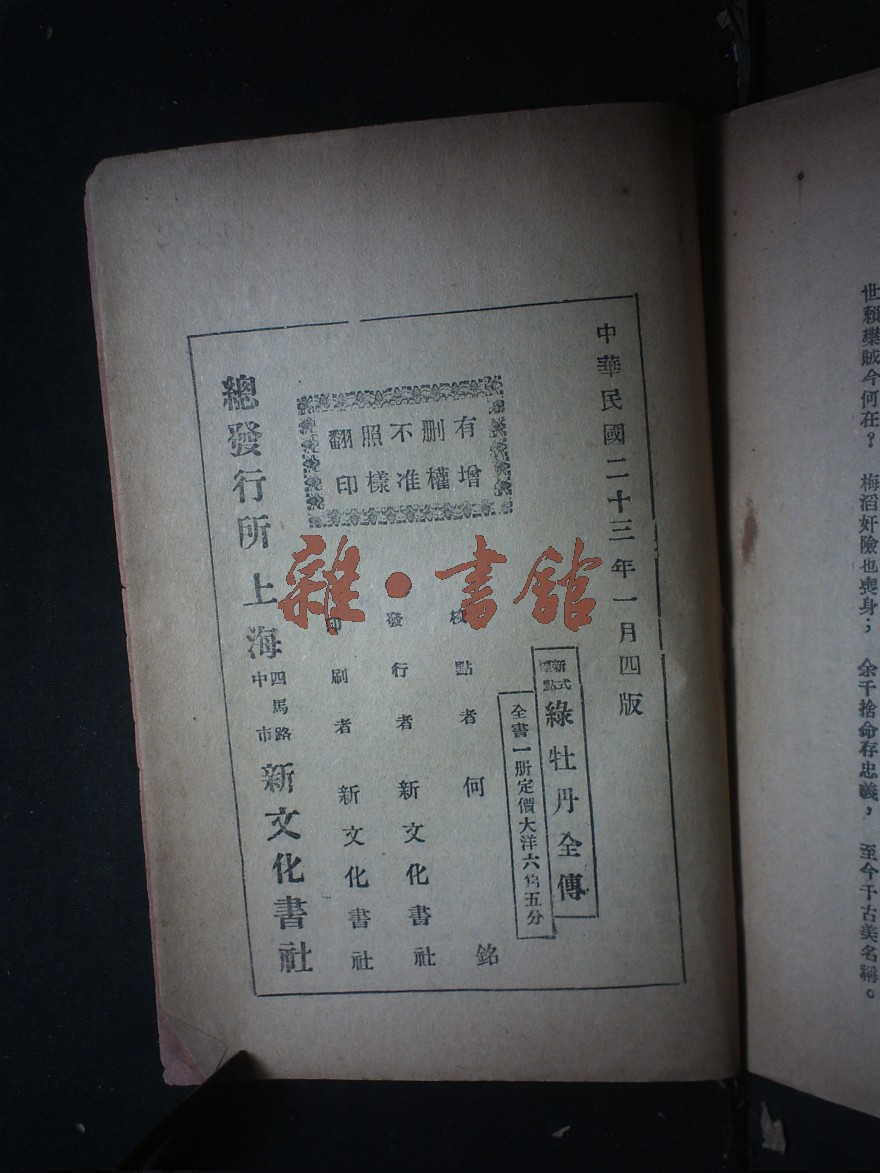 世賴欒賊今何在？　梅滔奸險也喪身；　余千捨命存忠義，　至今千古美名稱。
中華民國二十三年一月四版
新式標點
綠牡丹全傳
全書一册定價大洋六角五分
校點者　何銘
發行者　新文化書社
印刷者　新文化書社
有增
删權
不准
照樣
翻印
總發行所　上海
四馬路
中市
新文化書社
雜·書館